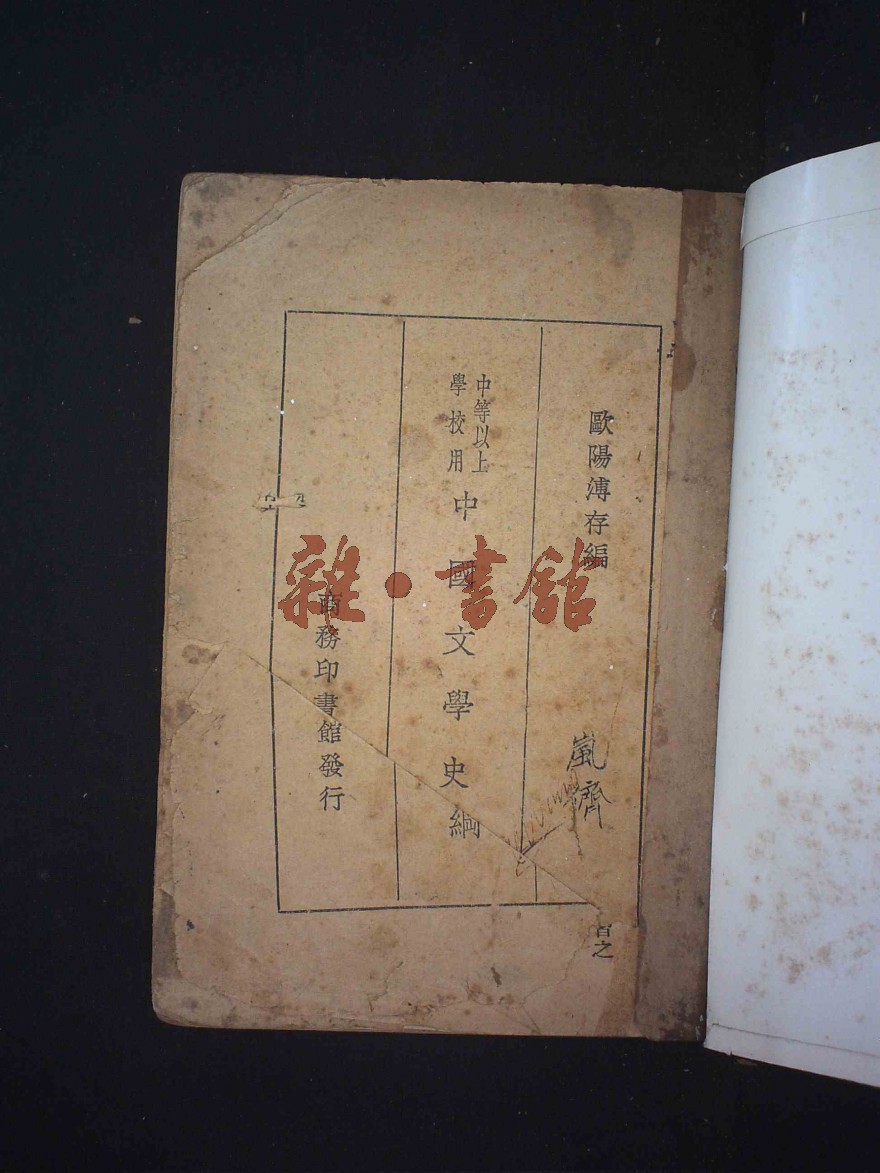 歐陽溥存編
中等以上
學校用
中國文學史綱
商務印書館發行
嵐濟
雜·書館